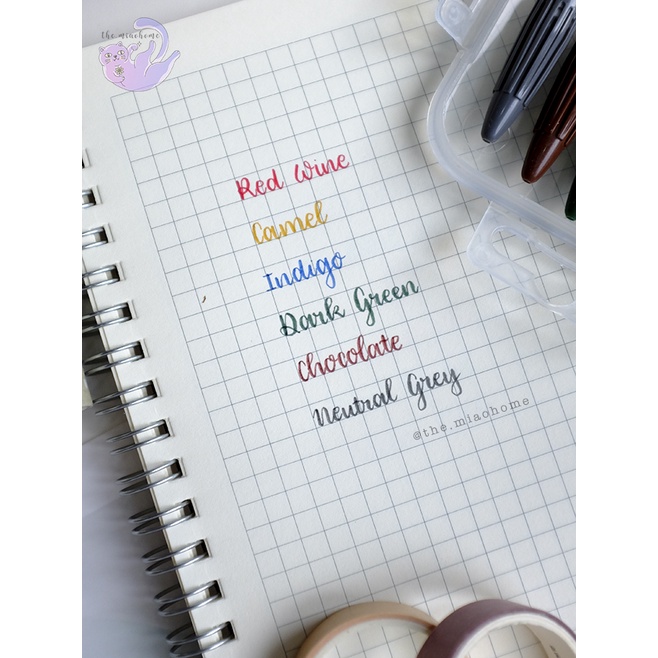 the.miaohome
Red Wine
Camel
Indigo
Dark Green
Chocolate
Neutral Grey
@the.miaohome